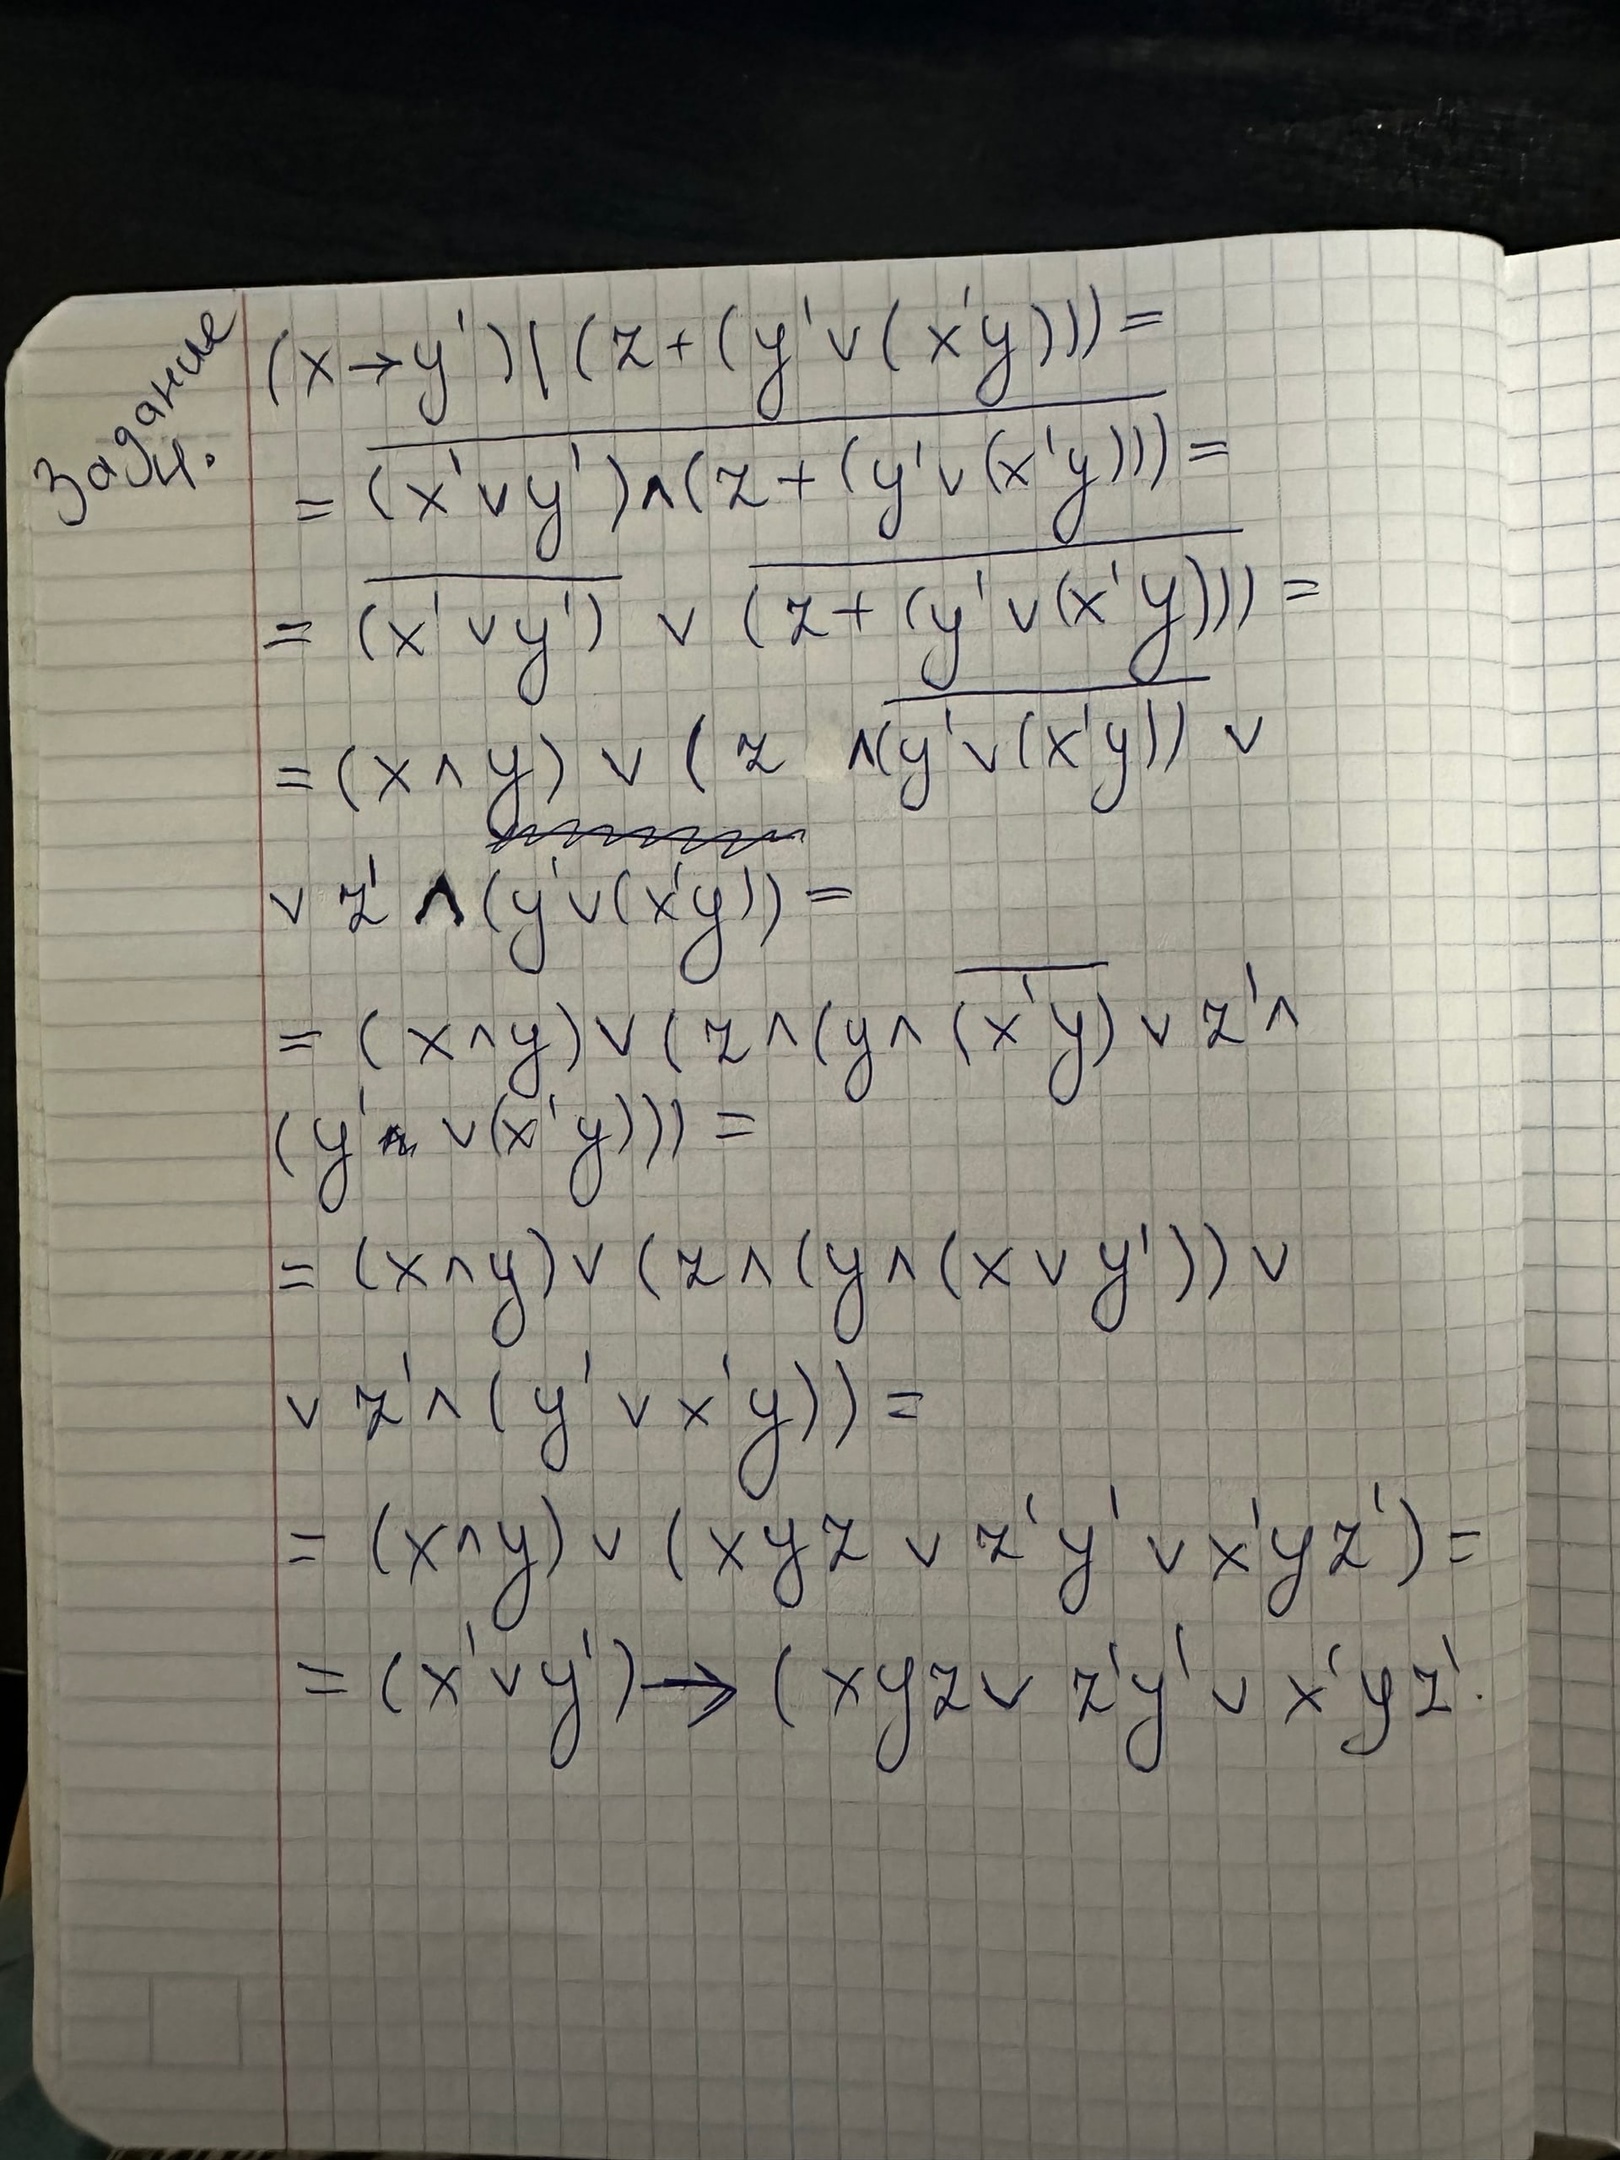 Задание
4.
(x→y')|(z+(y'∨(x'y)))=
= (x'∨y')∧(z+(y'∨(x'y)))=
= (x'∨y') ∨ (z+(y'∨(x'y))) =
=(x∧y) ∨ (z ∧(y'∨(x'y)) ∨
∨ z' ∧(y'∨(x'y))=
= (x∧y)∨(z∧(y∧(x'y) ∨ z'∧
(y' ∨(x'y)))=
= (x∧y)∨(z∧(y∧(x∨y'))∨
∨ z'∧(y'∨x'y))=
= (x∧y)∨(xyz ∨ z'y'∨x'yz')=
= (x'∨y')→(xyz∨ z'y'∨ x'yz'.